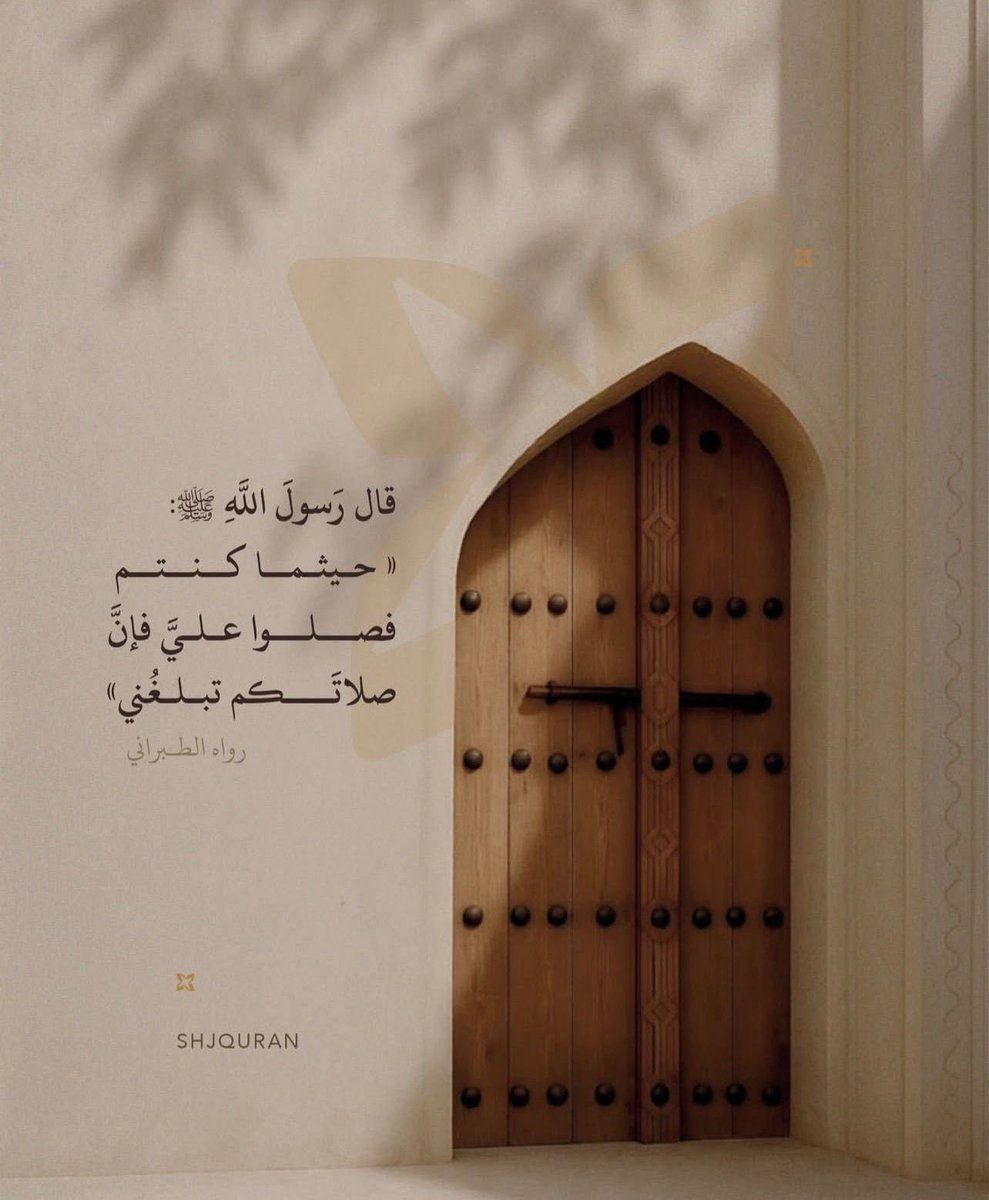 قال رَسولَ اللَّهِ ﷺ:
« حيثما كنتم
فصلوا عليَّ فإنَّ
صلاتَكم تبلغُني»
رواه الطبراني
SHJQURAN